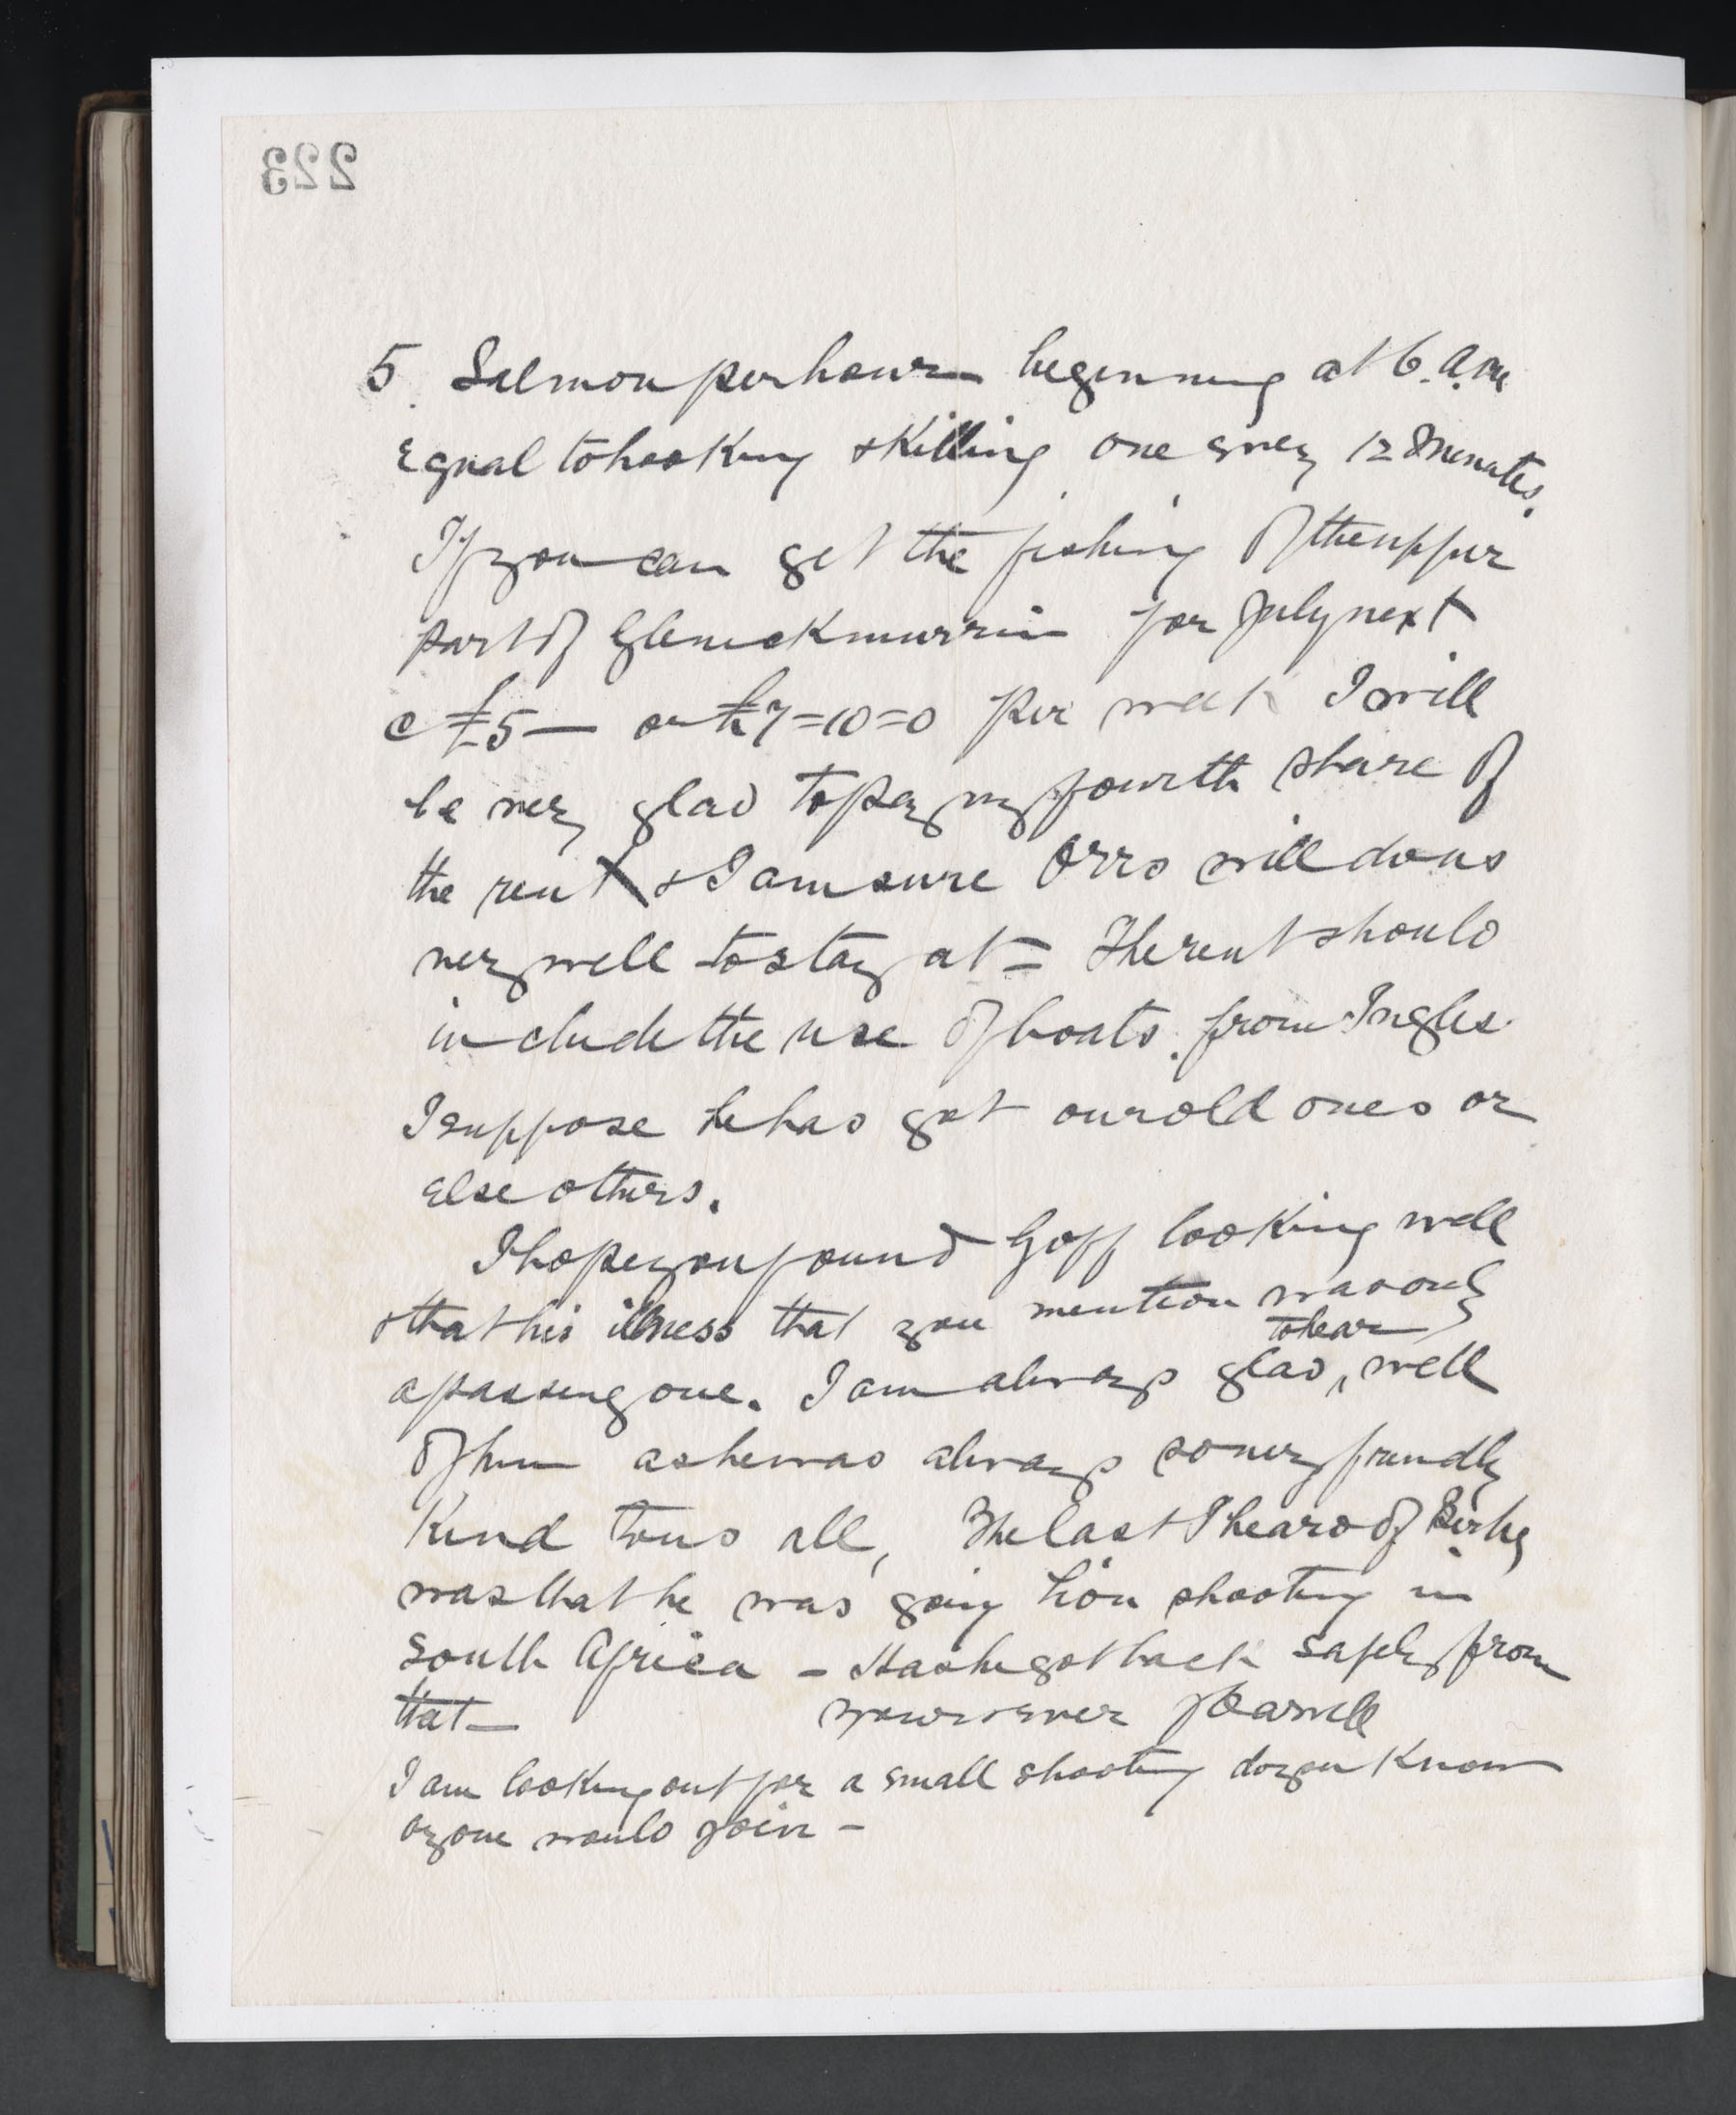 223
5 Salmon per hour — beginning at 6. a.m
Equal to hooking & killing one every 12 minutes.
If you can get the fishing of the upper
part of Glenickmurrin for July next
@ £5 — or £7=10=0 per week I will
be very glad to pay my fourth share of
the rent & I am sure Orrs will do us
very well to stay at = The rent should
include the use of boats. from Ingles
I suppose he has got our old ones or
Else others.
I hope you found Goff looking well
& that his illness that you mention was only
a passing one. I am always glad to hear well
of him as he was always so very friendly
Kind to us all, The last I heard of
was that he was going lion shooting in
South Africa – Has he got back safely from
that — yours ever
I am looking out for a small shooting do you know
any one would join –